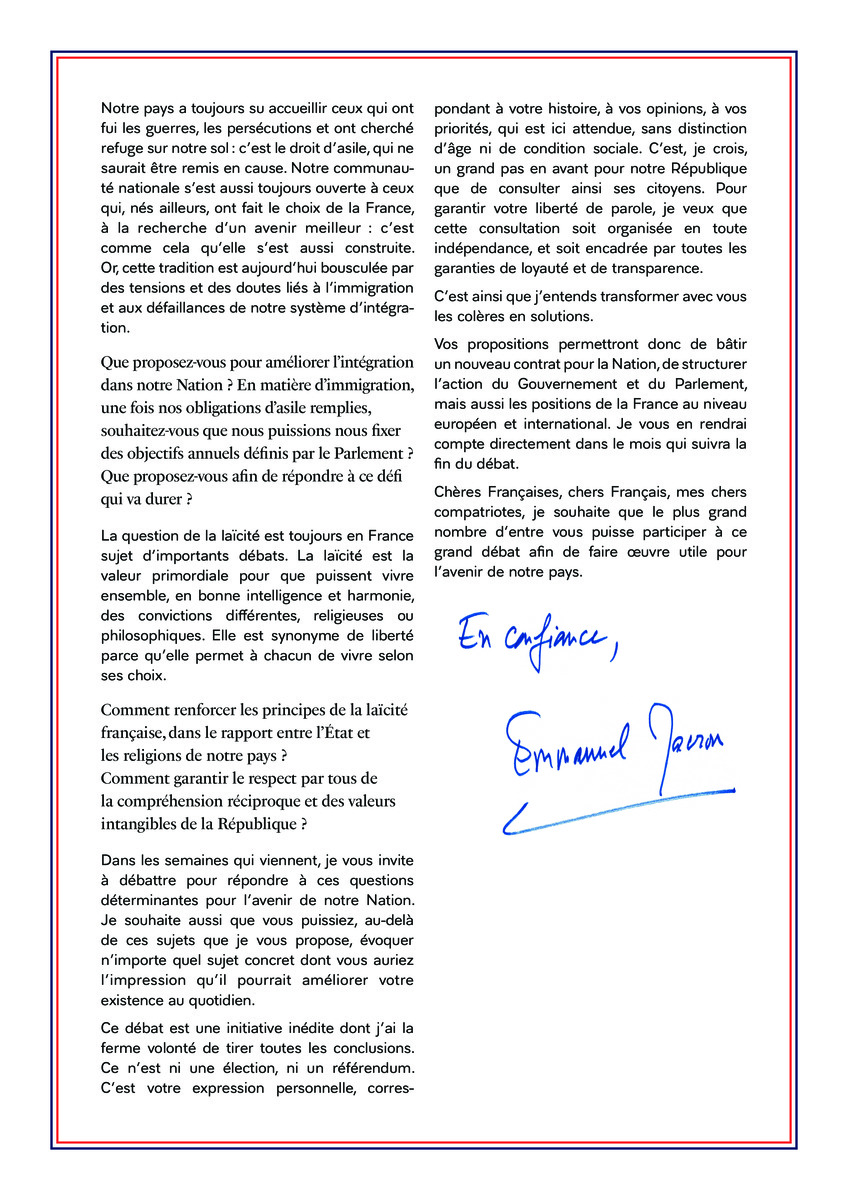 Notre pays a toujours su accueillir ceux qui ont
fui les guerres, les persécutions et ont cherché
refuge sur notre sol : c’est le droit d’asile, qui ne
saurait être remis en cause. Notre communau-
té nationale s’est aussi toujours ouverte à ceux
qui, nés ailleurs, ont fait le choix de la France,
à la recherche d’un avenir meilleur : c’est
comme cela qu’elle s’est aussi construite.
Or, cette tradition est aujourd’hui bousculée par
des tensions et des doutes liés à l’immigration
et aux défaillances de notre système d’intégra-
tion.
Que proposez-vous pour améliorer l’intégration
dans notre Nation ? En matière d’immigration,
une fois nos obligations d’asile remplies,
souhaitez-vous que nous puissions nous fixer
des objectifs annuels définis par le Parlement ?
Que proposez-vous afin de répondre à ce défi
qui va durer ?
La question de la laïcité est toujours en France
sujet d’importants débats. La laïcité est la
valeur primordiale pour que puissent vivre
ensemble, en bonne intelligence et harmonie,
des convictions différentes, religieuses ou
philosophiques. Elle est synonyme de liberté
parce qu’elle permet à chacun de vivre selon
ses choix.
Comment renforcer les principes de la laïcité
française, dans le rapport entre l’État et
les religions de notre pays ?
Comment garantir le respect par tous de
la compréhension réciproque et des valeurs
intangibles de la République ?
Dans les semaines qui viennent, je vous invite
à débattre pour répondre à ces questions
déterminantes pour l’avenir de notre Nation.
Je souhaite aussi que vous puissiez, au-delà
de ces sujets que je vous propose, évoquer
n’importe quel sujet concret dont vous auriez
l’impression qu’il pourrait améliorer votre
existence au quotidien.
Ce débat est une initiative inédite dont j’ai la
ferme volonté de tirer toutes les conclusions.
Ce n’est ni une élection, ni un référendum.
C’est votre expression personnelle, corres-
pondant à votre histoire, à vos opinions, à vos
priorités, qui est ici attendue, sans distinction
d’âge ni de condition sociale. C’est, je crois,
un grand pas en avant pour notre République
que de consulter ainsi ses citoyens. Pour
garantir votre liberté de parole, je veux que
cette consultation soit organisée en toute
indépendance, et soit encadrée par toutes les
garanties de loyauté et de transparence.
C’est ainsi que j’entends transformer avec vous
les colères en solutions.
Vos propositions permettront donc de bâtir
un nouveau contrat pour la Nation, de structurer
l’action du Gouvernement et du Parlement,
mais aussi les positions de la France au niveau
européen et international. Je vous en rendrai
compte directement dans le mois qui suivra la
fin du débat.
Chères Françaises, chers Français, mes chers
compatriotes, je souhaite que le plus grand
nombre d’entre vous puisse participer à ce
grand débat afin de faire œuvre utile pour
l’avenir de notre pays.
En confiance,
Emmanuel Macron